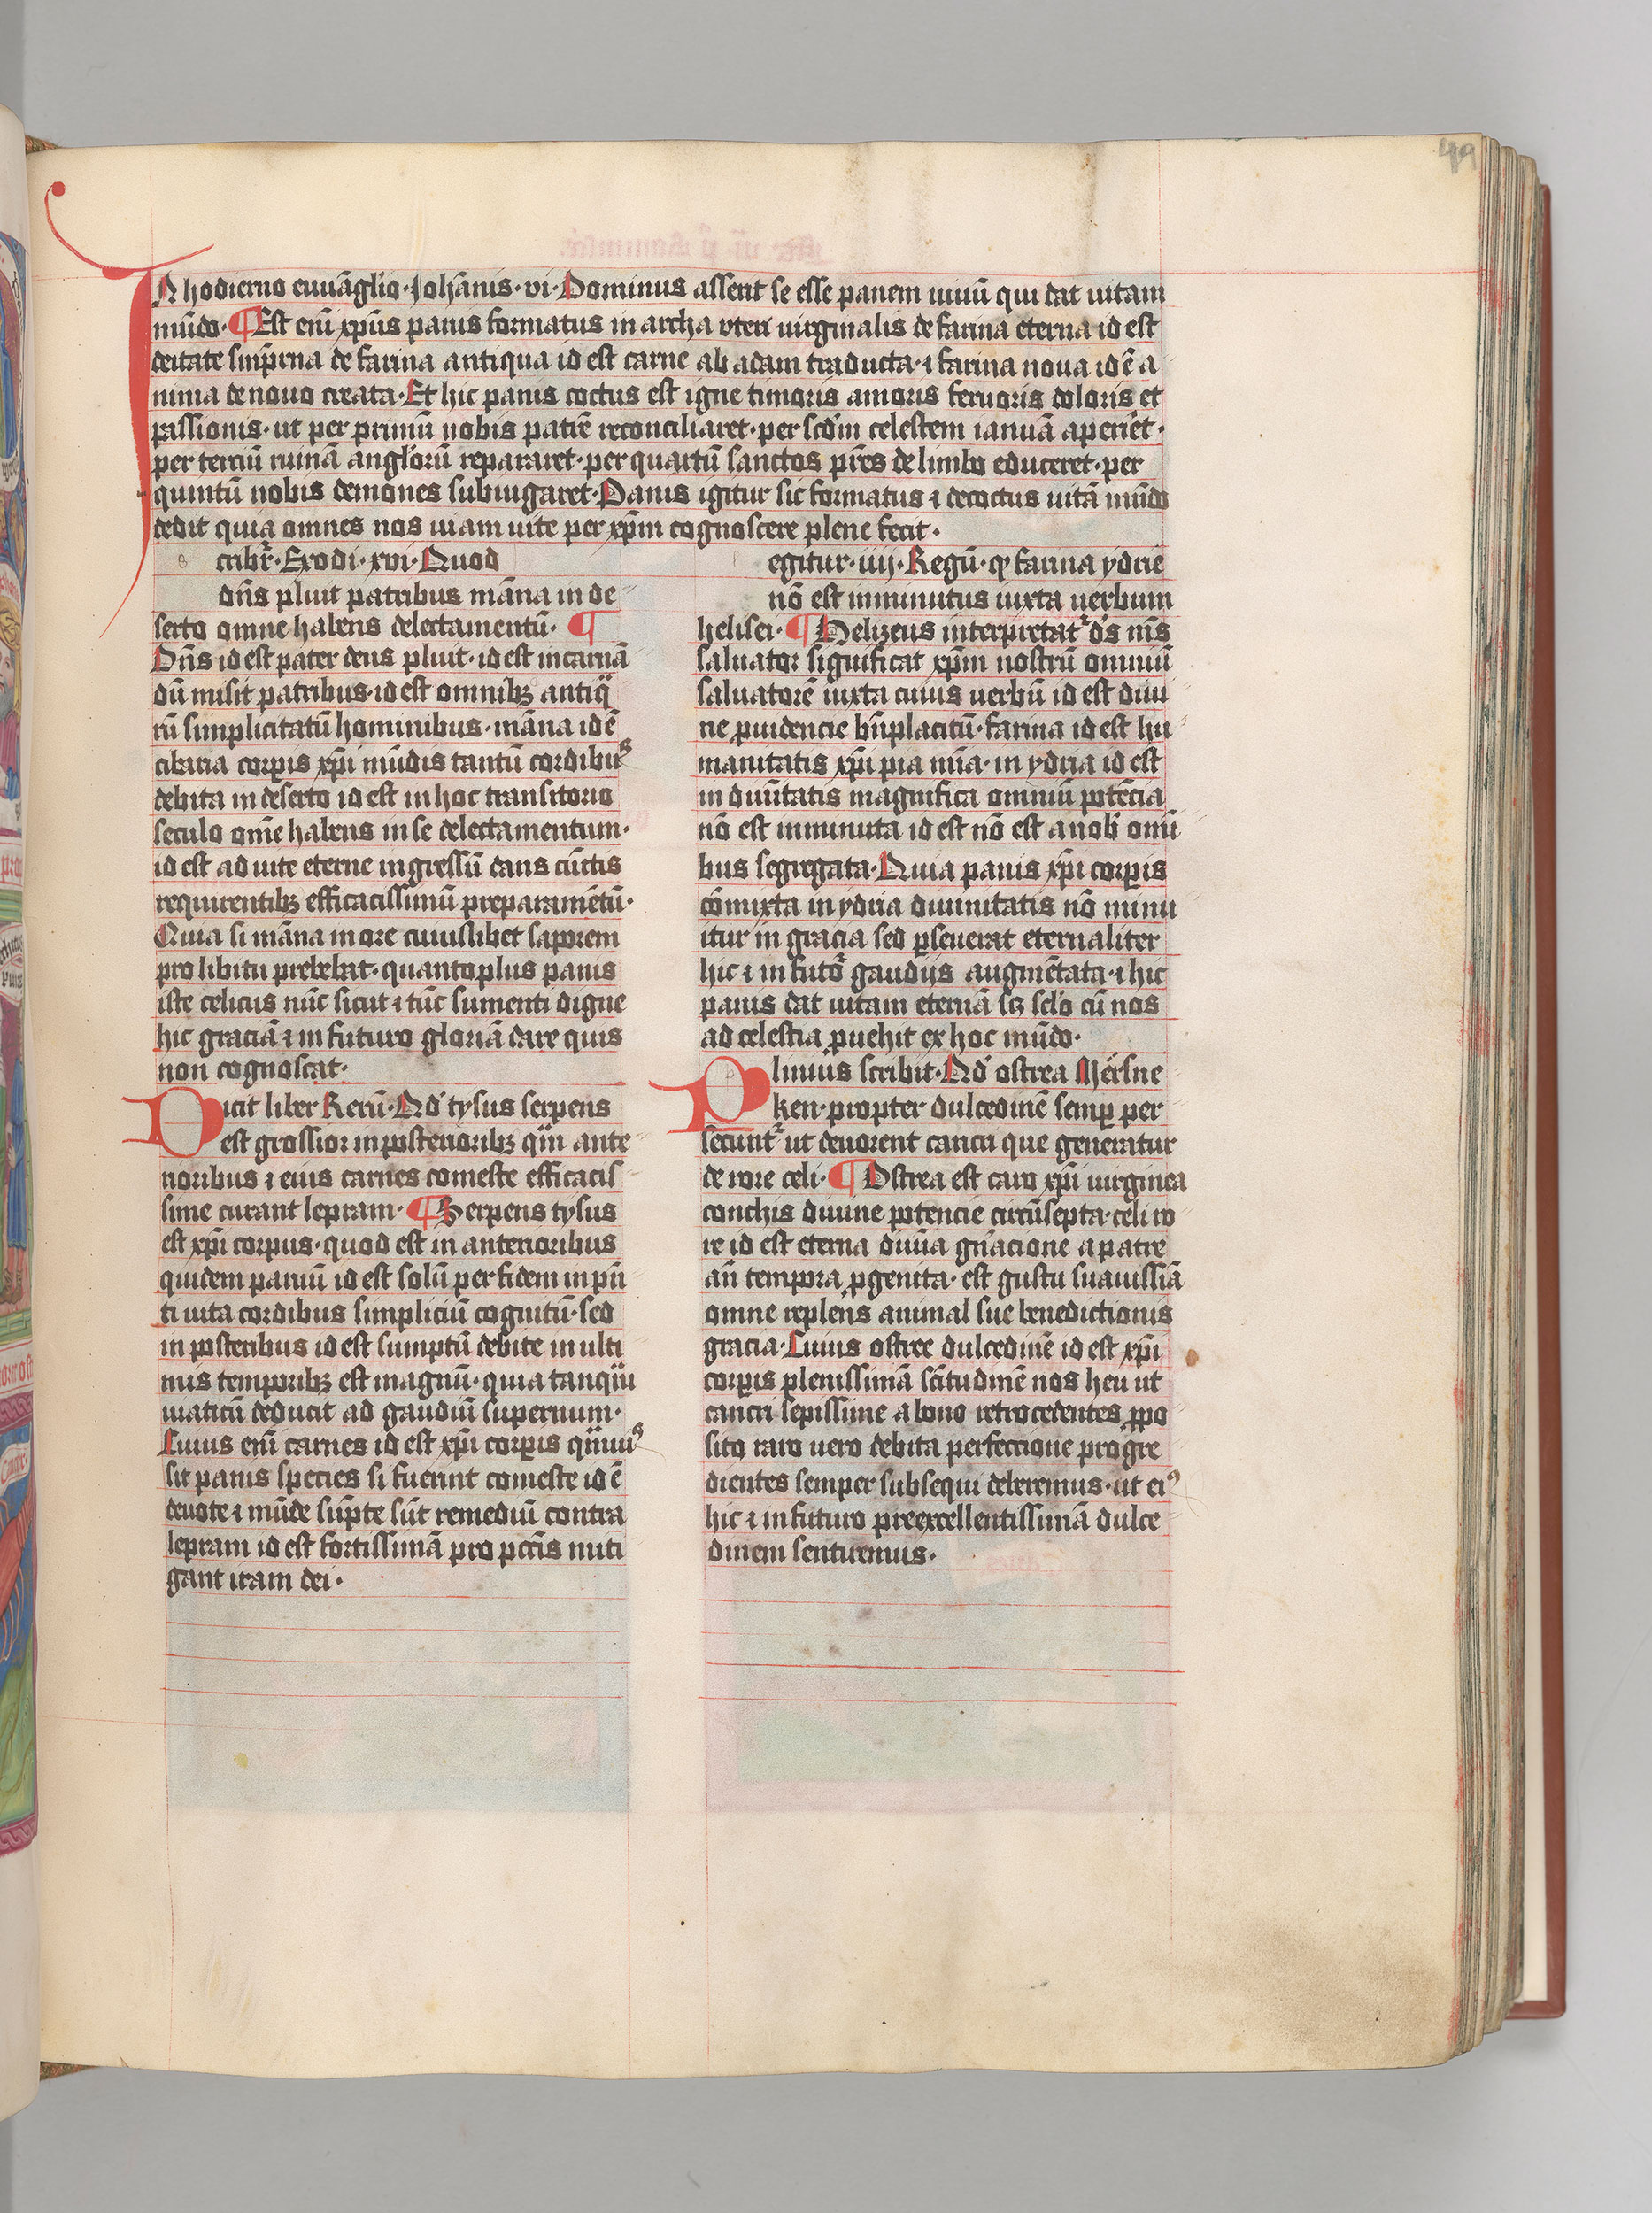 49
IN hodierno euuāglio · Johānis · vi · Dominus asserit se esse panem uiuū qui dat uitam
mūdo · ¶ Est enī xp̄us panis formatus in archa vteri uirginalis de farina eterna id est
deitate sup̄rna de farina antiqua id est carne ab adam traducta · ⁊ farina noua id ē a
nima de nouo creata · Et hic panis coctus est igne timoris amoris feruoris doloris et
passionis · ut per primū nobis patrē reconciliaret · per scd'm celestem ianuā aperiret ·
per terciū ruinā angl'orū repararet · per quartū sanctos pr̄es de limbo educeret · per
quintū nobis demones subiugaret · Panis igitur sic formatus ⁊ decoctus uitā mūdo
dedit quia omnes nos uiam uite per xp̄m cognoscere plene fecit ·
cribr̄ · Exodi · xvi · Quod
dn̄s pluit patribus māna in de
serto omne habens delectamentū · ¶
Dn̄s id est pater deus pluit · id est incarnā
dū misit patribus · id est omnibꝫ antiq
rū simplicitatū hominibus · māna id ē
cibaria corꝑis xp̄i mūdis tantū cordibuꝰ
debita in deserto id est in hoc transitorio
seculo om̄e habens in se delectamentum ·
id est ad uite eterne ingressū dans cūctis
requirentibꝫ efficacissimū preparamētū ·
Quia si māna in ore cuiuslibet saporem
pro libitu prebebat · quanto plus panis
iste celicus nūc sicut ⁊ tūc sumenti digne
hic graciā ⁊ in futuro gloriā dare quis
non cognoscat ·
Dicit liber Rerū · Qd' tysus serpens
est grossior in posterioribꝫ qm̄ ante
rioribus ⁊ eius carnes comeste efficacis
sime curant lepram · ¶ Serpens tysus
est xp̄i corpus · quod est in anterioribus
quidem paruū id est solū per fidem in pn̄
ti uita cordibus simpliciū cognitū · sed
in posteribus id est sumptū debite in ulti
mis temporibꝫ est magnū · quia tanqm̄
uiaticū deducit ad gaudiū supernum ·
Cuius enī carnes id est xp̄i corꝑis qmuiꝰ
sit panis species si fuerint comeste id ē
deuote ⁊ mūde sūpte sūt remediū contra
lepram id est fortissimā pro pcc̄is miti
gant iram dei ·
egitur · iiij · Regū · ꝙ farina ydrie
nō est inminutus iuxta uerbum
helisei · ¶ Helizeus interpretat' d's m̄s
saluator significat xp̄m nostrū omniū
saluatorē iuxta cuius uerbū id est diui
ne ꝓuidencie bn̄placitū · farina id est hu
manitatis xp̄i pia mīa · in ydria id est
in diuītatis magnifica omniū potēcia
nō est inminuta id est nō est a nob' omī
bus segregata · Quia panis xp̄i corꝑis
cōmixta in ydria diuinitatis nō minu
itur in gracia sed ꝑseuerat eternaliter
hic ⁊ in futor̄ gaudijs augmētata · ⁊ hic
panis dat uitam eternā sꝫ scl'o cū nos
ad celestia ꝓuehit ex hoc mūdo ·
Plinius scribit · Qd' ostrea Mersne
ken · propter dulcedinē semꝑ per
secunt' ut deuorent cancri que generatur
de rore celi · ¶ Ostrea est caro xp̄i uirginea
conchis diuine potencie circūsepta · celi ro
re id est eterna diuīa gn̄acione a patre
an̄ tempora ꝓgenita · est gustu suauissīa
omne replens animal sue benedictionis
gracia · Cuius ostree dulcedinē id est xp̄i
corꝑis plenissimā sc̄itudinē nos heu ut
cancri sepissime a bono retrocedentes ꝓpo
sito raro uero debita perfeccione progre
dientes semper subsequi deberemus · ut eiꝰ
hic ⁊ in futuro preexcellentissimā dulce
dinem sentiremus ·